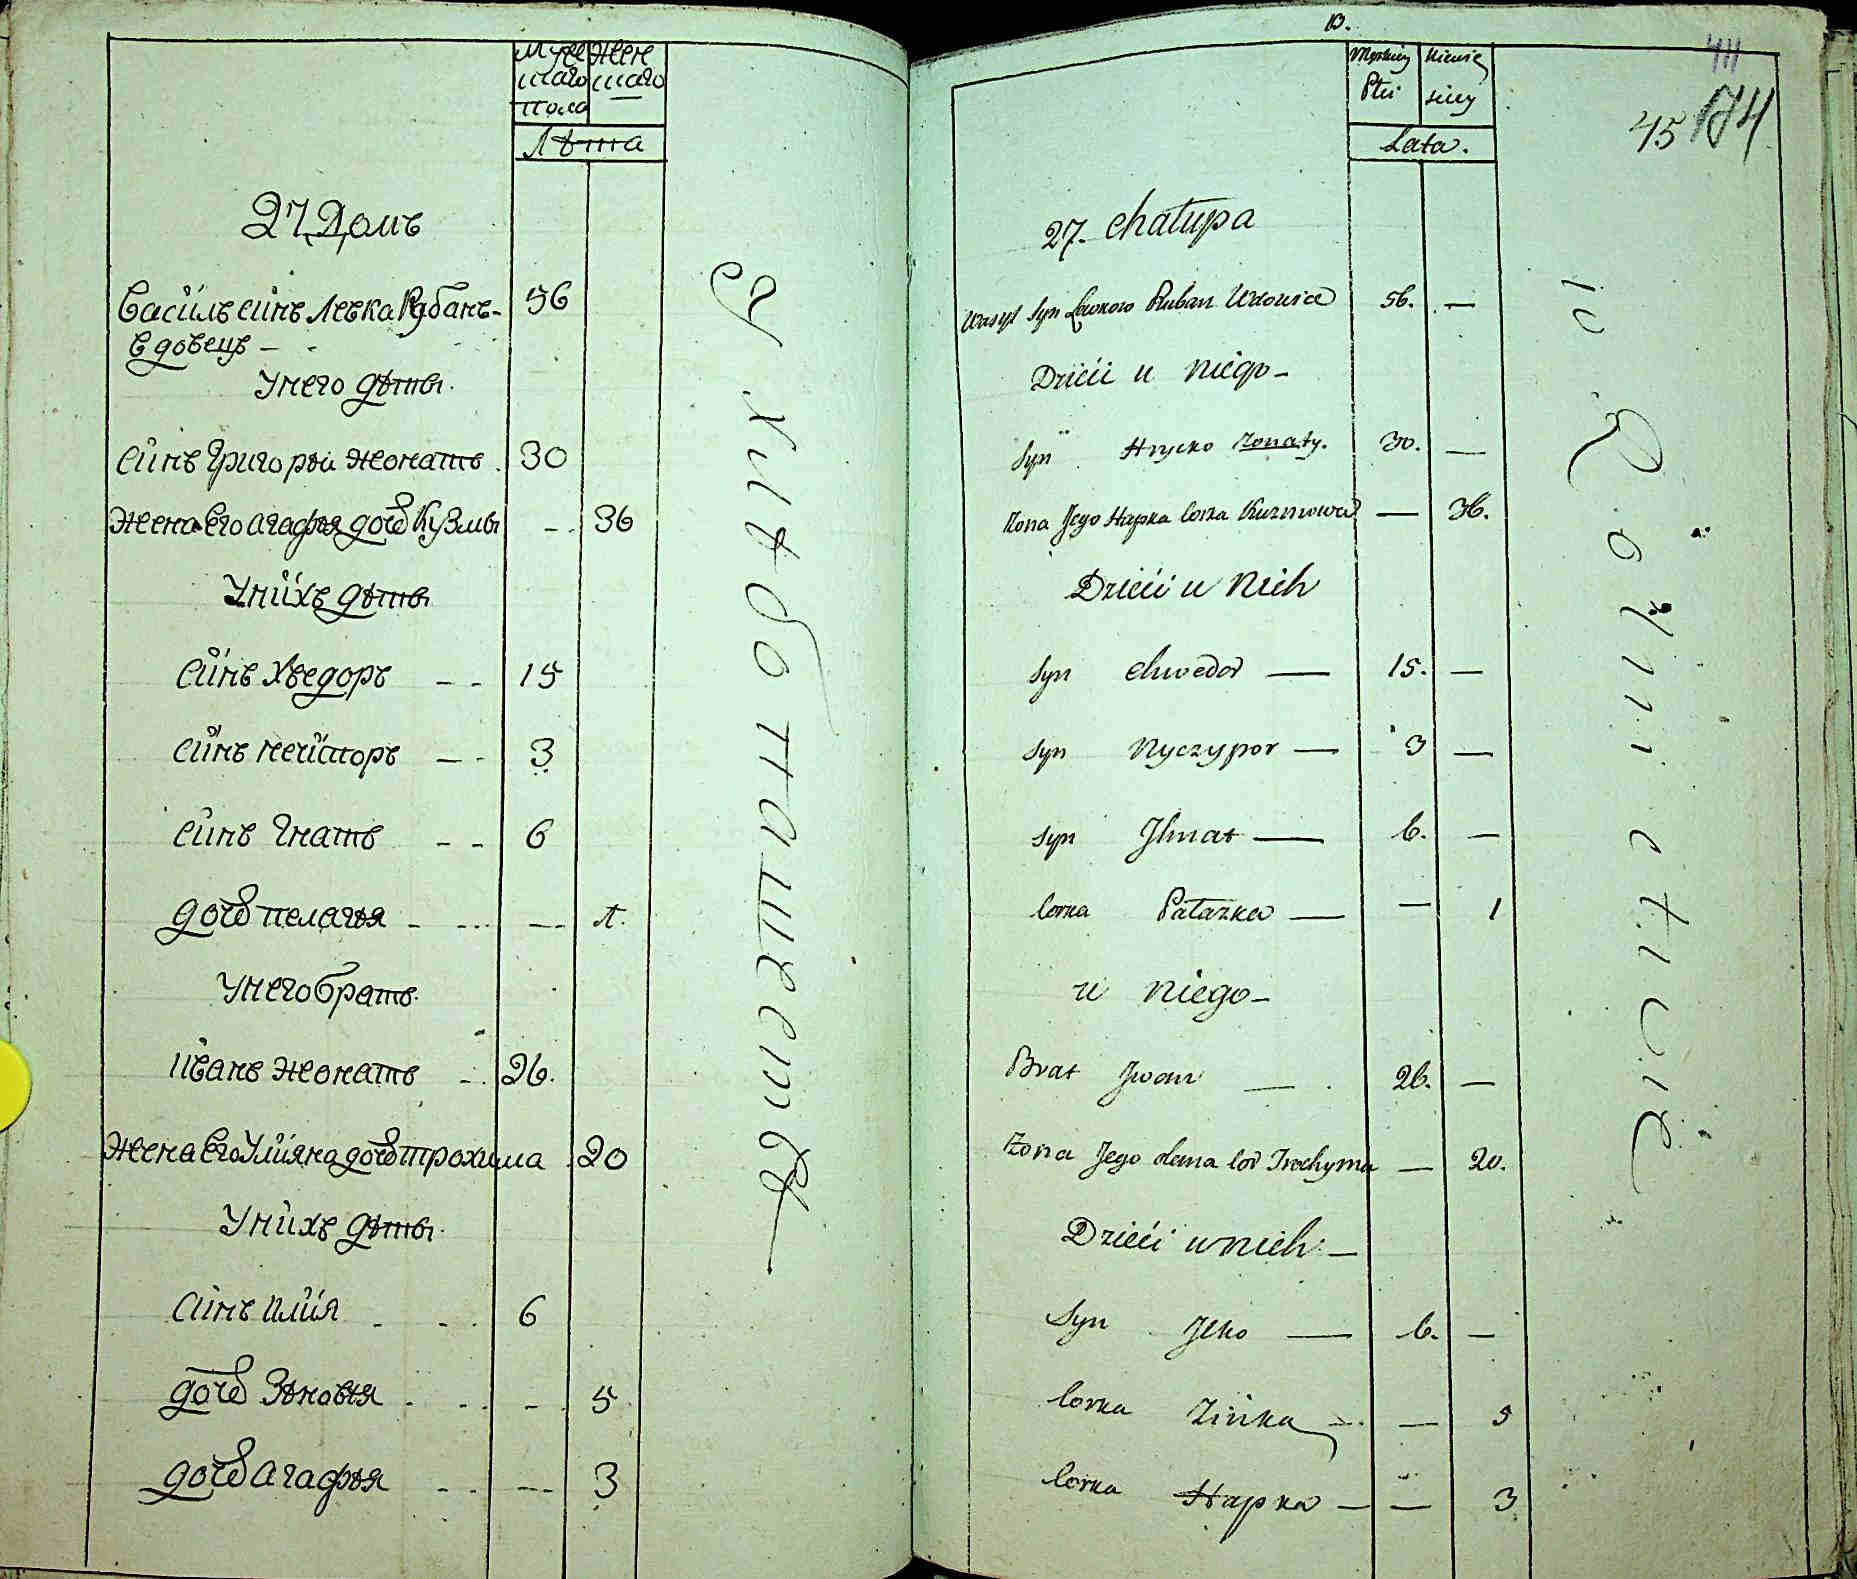 Муже
скаго
пола
Жен
скаго
Лѣта
27 Домъ
Василь синъ Левка Рубанъ 56
вдовецъ
Унего дѣты
Синъ Григорій жонатъ 30
Жена Его Агафія дочь Кузмы 36
Унихъ дѣты
Синъ Хведоръ 15
Синъ Нечипоръ 3
Синъ Гнатъ 6
дочь Пелагія 1
Унего братъ
Иванъ жонатъ 26.
Жена Его Улияна дочь Трохима 20
Унихъ дѣты
Синъ Илия 6
дочь Зѣновія 5
дочь Агафія 3
13.
411
45 174
Męskiey
Płci
Niewie
sciey
Lata.
27. Chałupa
Wasyl Syn Lewkow Ruban Wdowiec 56. —
Dzieci u Niego
Syn Hryćko Żonaty. 30. —
Żona Jego Hapka Corka Kuzmowa — 36.
Dzieci u Nich
Syn Chwedor — 15. —
Syn Nyczypor — 3 —
Syn Ihnat — 6. —
Corka Pałażka — — 1
u Niego
Brat Iwan — 26. —
Żona Jego Olana Cor Trochyma — 20.
Dzieci u nich —
Syn Ilko — 6. —
Corka Zinka — — 5
Corka Hapka — — 3